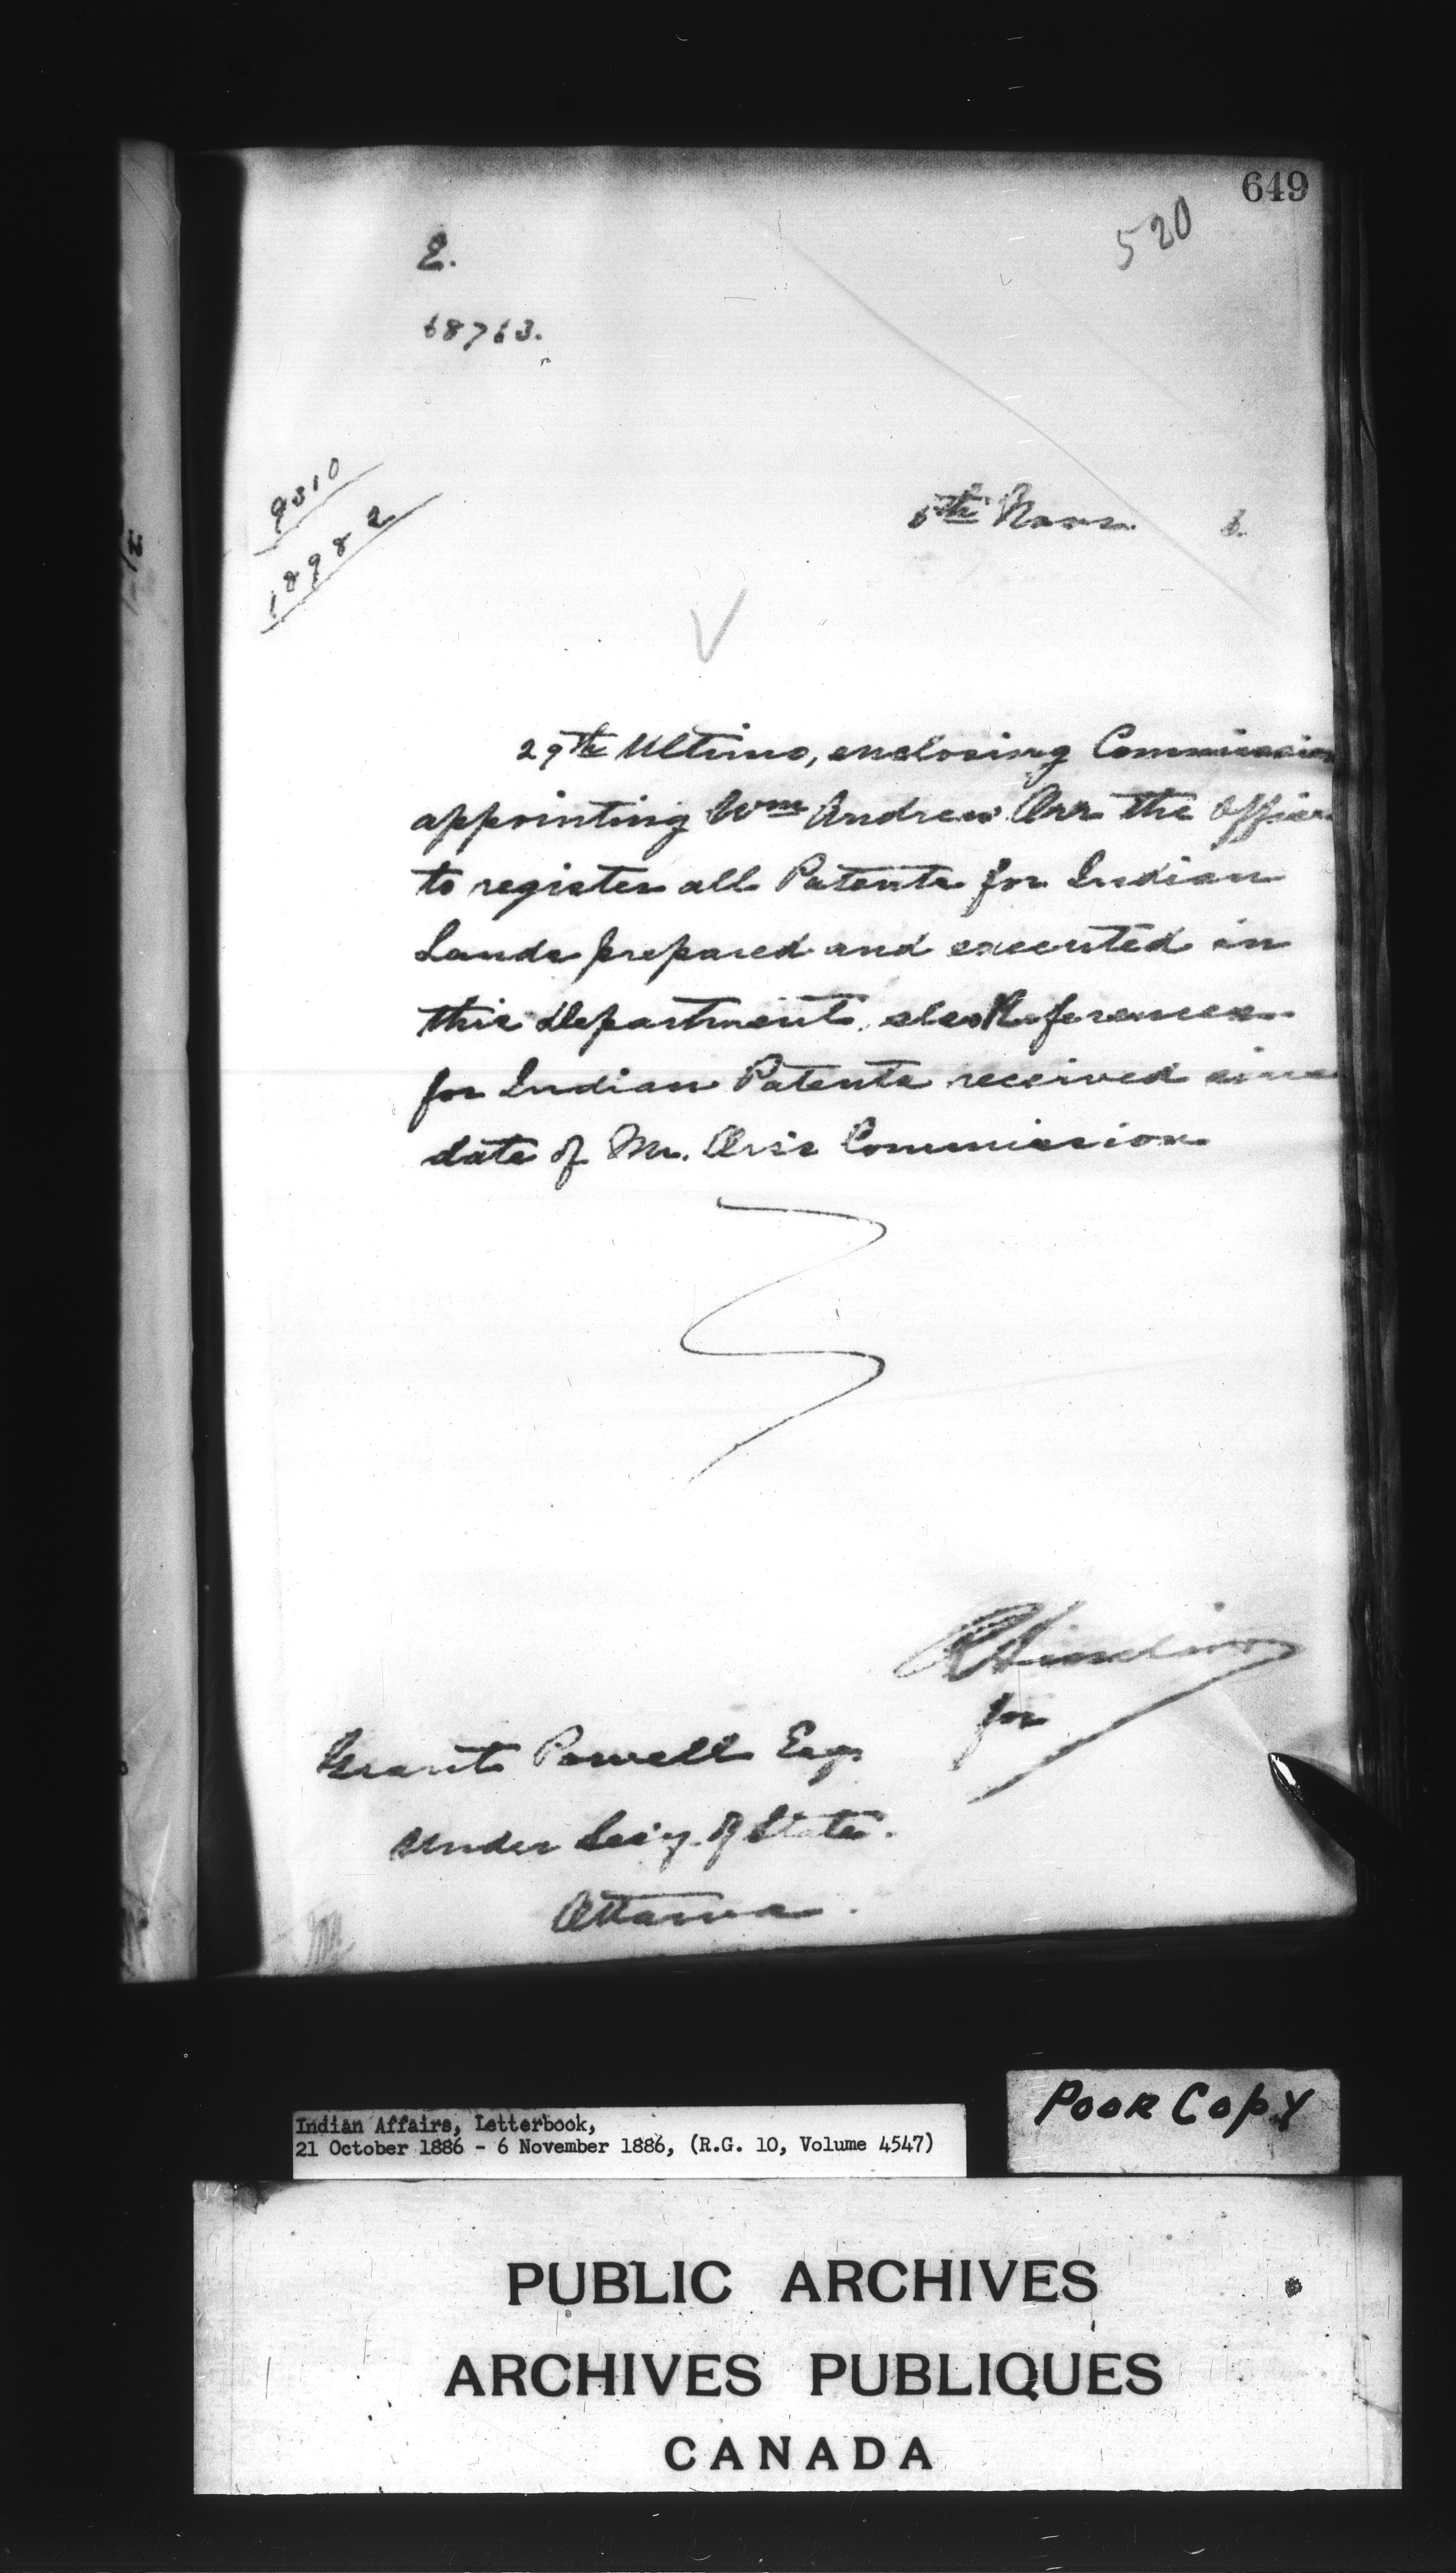 649
520
E.
68763.
9310
18982
5th Novr. 6.
29th Ultimo, enclosing Commission
appointing Wm Andrew Orr the Officer
to register all Patents for Indian
Lands prepared and executed in
this Department, also References
for Indian Patents received since
date of Mr. Orr's Commission
for
Grant Powell Esqr
Under Secy. of State.
Ottawa.
Indian Affairs, Letterbook,
21 October 1886 - 6 November 1886, (R.G. 10, Volume 4547)
POOR COPY
PUBLIC ARCHIVES
ARCHIVES PUBLIQUES
CANADA